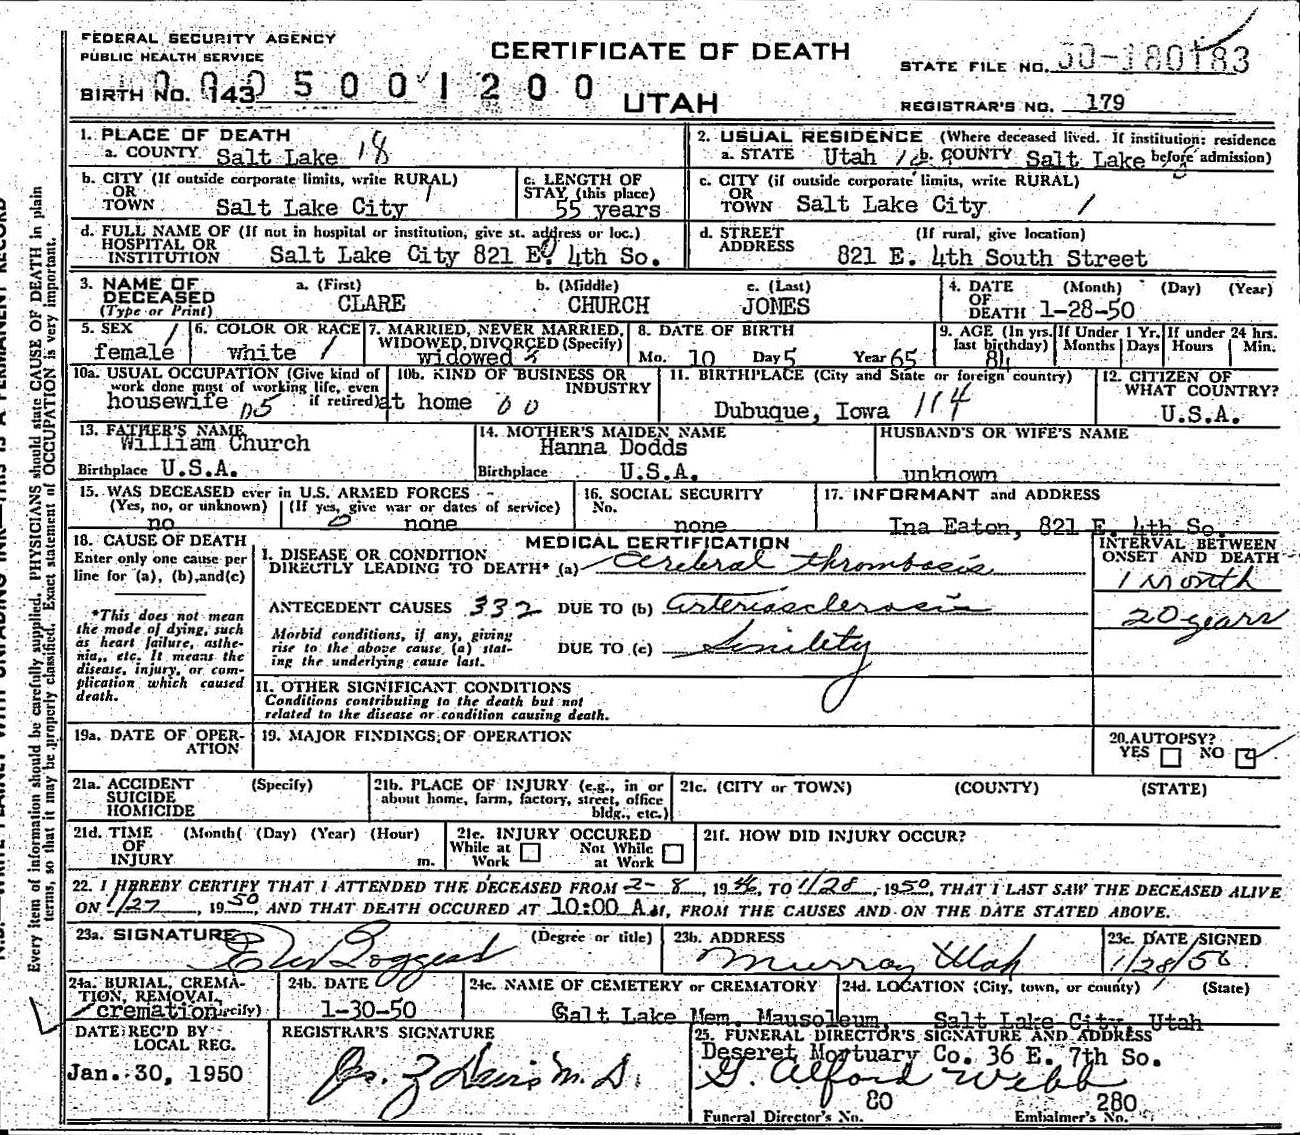 FEDERAL SECURITY AGENCY
PUBLIC HEALTH SERVICE
CERTIFICATE OF DEATH
STATE FILE NO. 50-180183
BIRTH NO. 143
0005001200
UTAH
REGISTRAR'S NO. 179
1. PLACE OF DEATH
a. COUNTY Salt Lake 18
2. USUAL RESIDENCE (Where deceased lived. If institution: residence before admission)
a. STATE Utah b. COUNTY Salt Lake
b. CITY (If outside corporate limits, write RURAL)
OR
TOWN Salt Lake City
c. LENGTH OF
STAY (this place)
55 years
c. CITY (if outside corporate limits, write RURAL)
OR
TOWN Salt Lake City 1
d. FULL NAME OF (If not in hospital or institution, give st. address or loc.)
HOSPITAL OR
INSTITUTION Salt Lake City 821 E. 4th So.
d. STREET (If rural, give location)
ADDRESS 821 E. 4th South Street
3. NAME OF DECEASED (Type or Print)
a. (First) b. (Middle) c. (Last)
CLARE CHURCH JONES
4. DATE OF DEATH (Month) (Day) (Year)
1-28-50
5. SEX
female
6. COLOR OR RACE
white
7. MARRIED, NEVER MARRIED,
WIDOWED, DIVORCED (Specify)
widowed
8. DATE OF BIRTH
Mo. 10 Day 5 Year 65
9. AGE (In yrs. last birthday)
84
If Under 1 Yr. Months Days
If under 24 hrs. Hours Min.
10a. USUAL OCCUPATION (Give kind of
work done most of working life, even
if retired)
housewife
10b. KIND OF BUSINESS OR
INDUSTRY
at home
11. BIRTHPLACE (City and State or foreign country)
Dubuque, Iowa 114
12. CITIZEN OF
WHAT COUNTRY?
U.S.A.
13. FATHER'S NAME
William Church
Birthplace U.S.A.
14. MOTHER'S MAIDEN NAME
Hanna Dodds
Birthplace U.S.A.
HUSBAND'S OR WIFE'S NAME
unknown
15. WAS DECEASED ever in U.S. ARMED FORCES
(Yes, no, or unknown) (If yes, give war or dates of service)
no 0 none
16. SOCIAL SECURITY
No.
none
17. INFORMANT and ADDRESS
Ina Eaton, 821 E. 4th So.
18. CAUSE OF DEATH
Enter only one cause per
line for (a), (b), and (c)
*This does not mean
the mode of dying, such
as heart failure, asthe-
nia, etc. It means the
disease, injury, or com-
plication which caused
death.
MEDICAL CERTIFICATION
I. DISEASE OR CONDITION
DIRECTLY LEADING TO DEATH* (a) Cerebral thrombosis
ANTECEDENT CAUSES 332 DUE TO (b) Arteriosclerosis
Morbid conditions, if any, giving
rise to the above cause (a) stat-
ing the underlying cause last.
DUE TO (c) Senility
INTERVAL BETWEEN
ONSET AND DEATH
1 Month
20 years
II. OTHER SIGNIFICANT CONDITIONS
Conditions contributing to the death but not
related to the disease or condition causing death.
19a. DATE OF OPER-
ATION
19. MAJOR FINDINGS OF OPERATION
20. AUTOPSY?
YES NO
21a. ACCIDENT (Specify)
SUICIDE
HOMICIDE
21b. PLACE OF INJURY (e.g., in or
about home, farm, factory, street, office
bldg., etc.)
21c. (CITY or TOWN) (COUNTY) (STATE)
21d. TIME (Month( (Day) (Year) (Hour)
OF
INJURY m.
21e. INJURY OCCURED
While at Work Not While at Work
21f. HOW DID INJURY OCCUR?
22. I HEREBY CERTIFY THAT I ATTENDED THE DECEASED FROM 2-8, 1946, TO 1/28, 1950, THAT I LAST SAW THE DECEASED ALIVE
ON 1/27, 1950, AND THAT DEATH OCCURED AT 10:00 A.M, FROM THE CAUSES AND ON THE DATE STATED ABOVE.
23a. SIGNATURE (Degree or title)
Boggess
23b. ADDRESS
Murray Utah
23c. DATE SIGNED
1/28/50
24a. BURIAL, CREMA-
TION, REMOVAL,
(Specify)
cremation
24b. DATE
1-30-50
24c. NAME OF CEMETERY or CREMATORY
Salt Lake Mem. Mausoleum
24d. LOCATION (City, town, or county) (State)
Salt Lake City, Utah
DATE REC'D BY
LOCAL REG.
Jan. 30, 1950
REGISTRAR'S SIGNATURE
M.D.
25. FUNERAL DIRECTOR'S SIGNATURE AND ADDRESS
Deseret Mortuary Co. 36 E. 7th So.
G. Alford Webb
Funeral Director's No. 80
Embalmer's No. 280
Every item of information should be carefully supplied. PHYSICIANS should state CAUSE OF DEATH in plain
terms, so that it may be properly classified. Exact statement of OCCUPATION is very important.